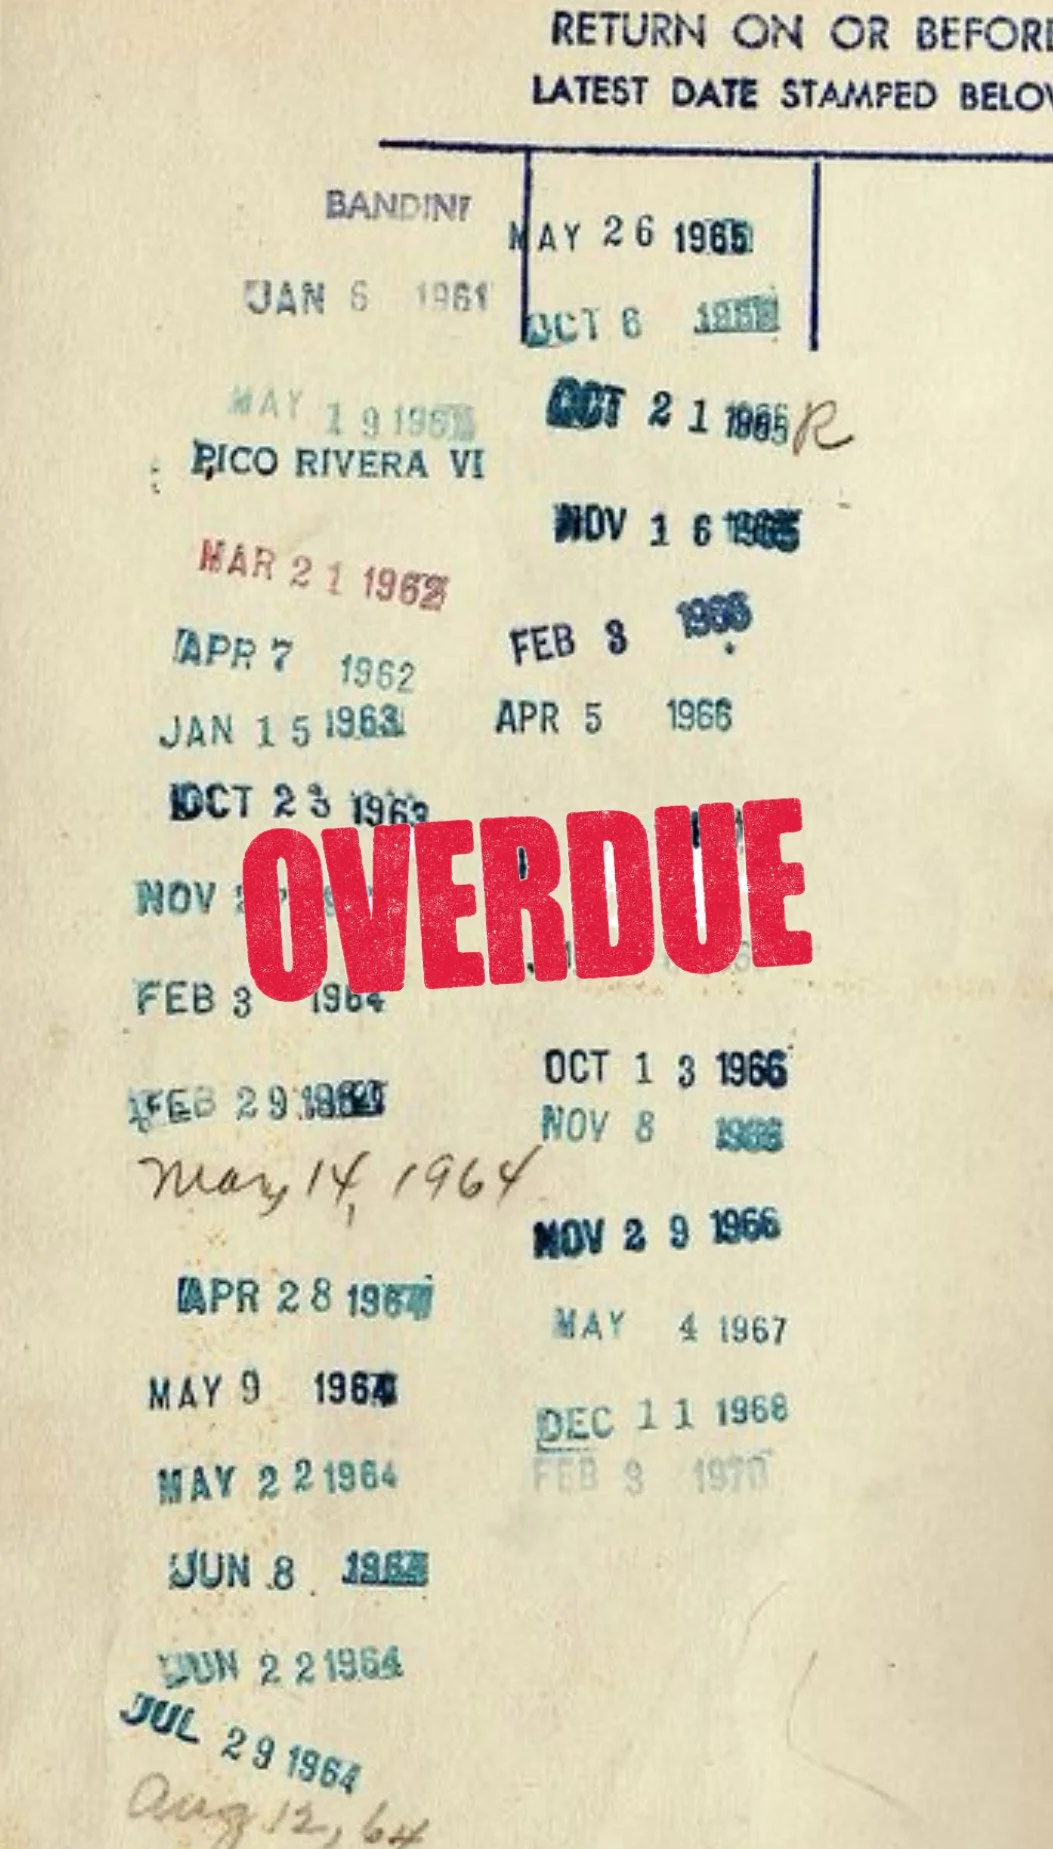 RETURN ON OR BEFORE
LATEST DATE STAMPED BELOW
BANDINI
JAN 6 1961
MAY 19 196
PICO RIVERA VI
MAR 21 1962
APR 7 1962
JAN 15 1963
OCT 23 1963
NOV
FEB 3 1964
FEB 29 1964
Mar, 14, 1964
APR 28 1964
MAY 9 1964
MAY 22 1964
JUN 8 1964
JUN 22 1964
JUL 29 1964
Aug 12, 64
MAY 26 1965
OCT 6
OCT 21 1965 R
NOV 16 1965
FEB 3 1966
APR 5 1966
OVERDUE
OCT 13 1966
NOV 8 1966
NOV 29 1966
MAY 4 1967
DEC 11 1968
FEB 3 1970